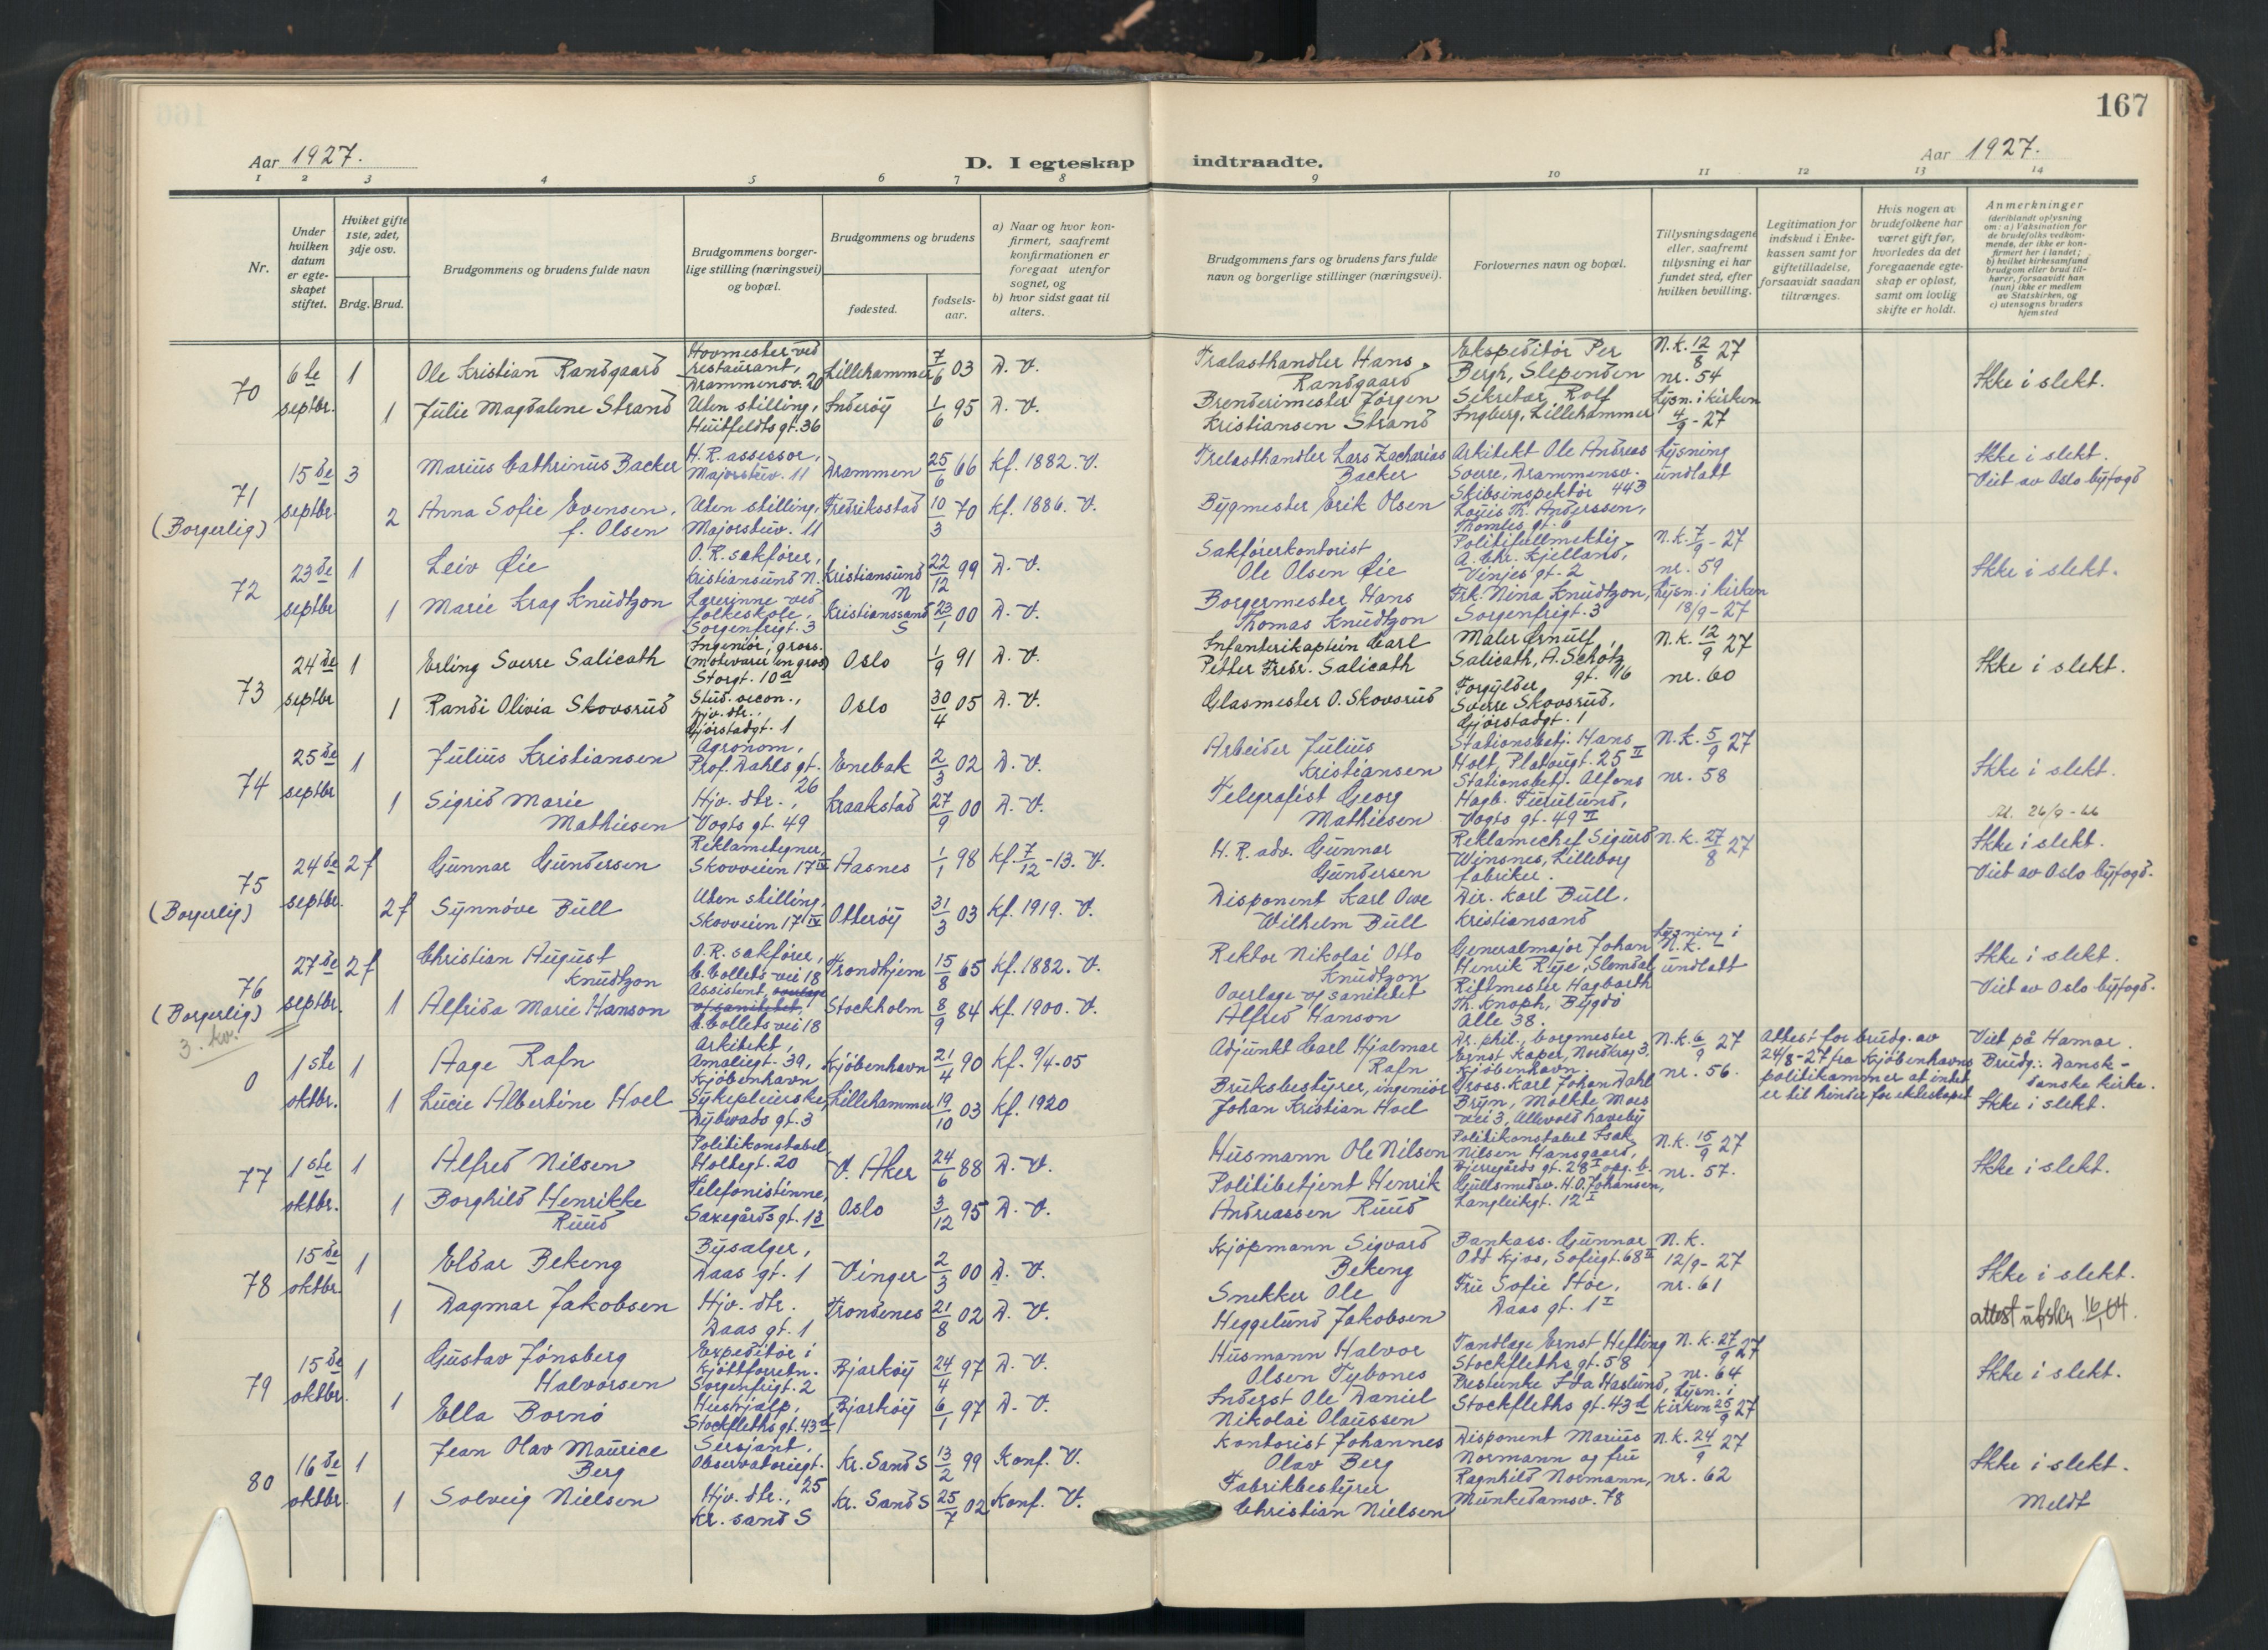 167
Aar 1927.
D. I egteskap indtraadte.
Aar 1927.
1 2 3 4 5 6 7 8 9 10 11 12 13 14
Nr.
Under hvilken datum er egteskapet stiftet.
Hvilket gifte 1ste, 2det, 3dje osv.
Brdg. Brud.
Brudgommens og brudens fulde navn
Brudgommens borgerlige stilling (næringsvei) og bopæl.
Brudgommens og brudens
fødested.
fødselsaar.
a) Naar og hvor konfirmert, saafremt konfirmationen er foregaat utenfor sognet, og
b) hvor sidst gaat til alters.
Brudgommens fars og brudens fars fulde navn og borgerlige stillinger (næringsvei).
Forlovernes navn og bopæl.
Tillysningsdagene eller, saafremt tillysning ei har fundet sted, efter hvilken bevilling.
Legitimation for indskud i Enkekassen samt for giftetilladelse, forsaavidt saadan tiltrænges.
Hvis nogen av brudefolkene har været gift før, hvorledes da det foregaaende egteskap er opløst, samt om lovlig skifte er holdt.
Anmerkninger
(deriblandt oplysning om: a) Vaksination for de brudefolks vedkommende, der ikke er konfirmert her i landet; b) hvilket kirkesamfund brudgom eller brud tilhører, forsaavidt han (hun) ikke er medlem av Statskirken, og c) utensogns bruders hjemsted
70 6te septbr. 1 Ole Kristian Randgaard Hovmester ved restaurant, Drammensv. 20 Lillehammer 7/6 03 D. V. Trælasthandler Hans Randgaard Ekspeditør Per Bergh, Slependen N.K. 12/8 27 nr. 54 Ikke i slekt.
1 Julie Magdalene Strand Uten stilling, Huitfeldts gt. 36 Inderøy 1/6 95 D. V. Brenderimester Jørgen Kristiansen Strand Sekretær Rolf Ingberg, Lillehammer Lysn. i kirken 4/9 - 27
71 (Borgerlig) 15de septbr. 3 Marius Cathrinus Backer H. R. assessor, Majorstuv. 11 Drammen 25/6 66 Kf. 1882. V. Trelasthandler Lars Zacharias Backer Arkitekt Ole Andreas Sverre, Drammensv. 443 Lysning undlatt Ikke i slekt. Viet av Oslo byfogd
2 Anna Sofie Evensen, f. Olsen Uten stilling, Majorstuv. 11 Fredriksstad 10/3 70 Kf. 1886. V. Bygmester Erik Olsen Skibsinspektør Louis Th. Anderssen, Thomles gt. 6
72 23de septbr 1 Leiv Øie O. R. sakfører, Kristiansund N. Kristiansund N 22/12 99 D. V. Sakførerkontorist Ole Olsen Øie Politifullmektig A. Chr. Kjelland, Vinjes gt. 2 N.K. 7/9 - 27 nr. 59 Ikke i slekt.
1 Marie Krag Knudtzon Lærerinne ved folkeskole, Sorgenfrigt. 3 Kristianssand S 23/1 00 D. V. Borgermester Hans Thomas Knudtzon Frk. Nina Knudtzon, Sorgenfrigt. 3 Lysn. i kirken 18/9 - 27
73 24de septbr 1 Erling Sverre Salicath Ingeniør, gross. (motevarer en gros) Storgt. 10a Oslo 1/9 91 D. V. Infanterikaptein Carl Petter Fredr. Salicath Maler Ørnulf Salicath, A. Schøtz gt. 16 N.K. 12/9 27 nr. 60 Ikke i slekt.
1 Randi Olivia Skovsrud Stud. oecon., hjv. dtr., Gjørstadgt. 1 Oslo 30/4 05 D. V. Glasmester O. Skovsrud Forgylder Sverre Skovsrud, Gjørstadgt. 1
74 25de septbr 1 Julius Kristiansen Agronom, Prof. Dahls gt. 26 Enebak 2/3 02 D. V. Arbeider Julius Kristiansen Stationsbetj. Hans Holt, Platougt. 25 II N.K. 5/9 27 nr. 58 Ikke i slekt.
1 Sigrid Marie Mathiesen Hjv. dtr., Vogts gt. 49 Kraakstad 27/9 00 D. V. Telegrafist Georg Mathiesen Stationsbetj. Alfons Hagb. Vogts gt. 49 II 26/9 - 66
75 (Borgerlig) 24de septbr. 2 f Gunnar Gundersen Reklametegner, Skovveien 17 IV Høsnes 1/1 98 Kf. 7/12 - 13. V. H. R. adv. Gunnar Gundersen Reklamechef Sigurd Winsnes, Lilleborg fabriker. N.K. 27/8 27 Ikke i slekt. Viet av Oslo byfogd.
2 f Synnøve Bull Uten stilling, Skovveien 17 IV Otterøy 31/3 03 Kf. 1919. V. Disponent Karl Owe Wilhelm Bull Dir. Karl Bull. Kristiansand
76 (Borgerlig) 3. kv. 27de septbr. 2 f Christian August Knudtzon O. R. sakfører, C. Collets vei 18 Trondhjem 15/8 65 Kf. 1882. V. Rektor Nikolai Otto Knudtzon Generalmajor Johan Henrik Rye, Slemdal Lysning i N.K. undlatt Ikke i slekt. Viet av Oslo byfogd.
1 Alfrida Marie Hanson Assistent, overlæge of sanitetet, C. Collets vei 18 Stockholm 8/9 84 Kf. 1900. V. Overlæge of sanitetet Alfred Hanson Rittmester Hagbarth Th. Knoph, Bygdø Alle 38.
0 1ste oktbr. 1 Aage Rafn Arkitekt, Amaliegt. 39, Kjöbenhavn Kjöbenhavn 21/4 90 Kf. 9/4-05 Adjunkt Carl Hjalmar Rafn Dr. phil., borgmester Ernst Kaper, Nordkrog 3, Kjöbenhavn N.K. 6/9 27 nr. 56. Attest for brudg. av 24/8-27 fra Kjøbenhavns politikammer at intet er til hinder for ekteskapet Viet på Hamar. Brudg.: Dansk - danske kirke. Ikke i slekt.
1 Lucie Albertine Hoel Sykepleierske, Dybwads gt. 3 Lillehammer 19/10 03 Kf. 1920 Bruksbestyrer, ingeniør Johan Kristian Hoel Gross. Karl Johan Dahl Bryn, Moltke Moes vei 3, Ullevold haveby
77 1ste oktbr. 1 Alfred Nilsen Politikonstabel, Holtegt. 20 V. Aker 24/6 88 D. V. Husmann Ole Nilsen Politikonstabel Isak Nilsen Hansgaard, Bjerregårds gt. 28 I opg. b. N.K. 15/9 27 nr. 57. Ikke i slekt.
1 Borghild Henrikke Ruud Telefonistinne, Saxegårds gt. 13 Oslo 3/12 95 D. V. Politibetjent Henrik Andreassen Ruud Gullsmedsv. H. O. Johansen, Langleikgt. 12 I
78 15de oktbr. 1 Eldar Bekeng Bysælger, Daas gt. 1 Vinger 2/3 00 D. V. Kjøpmann Sigvard Bekeng Bankass. Gunnar Odd Kjos, Sofiegt. 68 II N.K. 12/9 - 27 nr. 61 Ikke i slekt.
1 Dagmar Jakobsen Hjv. dtr. Daas gt. 1 Trondenes 21/8 02 D. V. Snekker Ole Heggelund Jakobsen Fru Sofie Hoe, Daas gt. 1 I attest utst. 64.
79 15de oktbr. 1 Gustav Jønsberg Halvorsen Expeditør i kjøttforretn. Sorgenfrigt. 2 Bjarkøy 24/4 97 D. V. Husmann Halvor Olsen Tybones Tandlæge Ernst Hefting Stockfleths gt. 58 N.K. 27/9 27 nr. 64 Ikke i slekt.
1 Ella Bornø Hushjælp, Stockfleths gt. 43d Bjarkøy 6/1 97 D. V. Inderst Ole Daniel Nikolai Olaussen Prestenke Ida Haslund, Stockfleths gt. 43d Lysn. i kirken 25/9 27
80 16de oktbr. 1 Jean Olav Maurice Berg Sersjant, Observatoriegt. 25 Kr. Sand S 13/2 99 Konf. V. Kontorist Johannes Olav Berg Disponent Marius Normann og frue Ragnhild Normann, Munkedamsv. 78 N.K. 24/9 27 nr. 62 Ikke i slekt.
1 Solveig Nielsen Hjv. dtr., Kr. sand S Kr. Sand S 25/7 02 Konf. V. Fabrikbestyrer Christian Nielsen Meldt